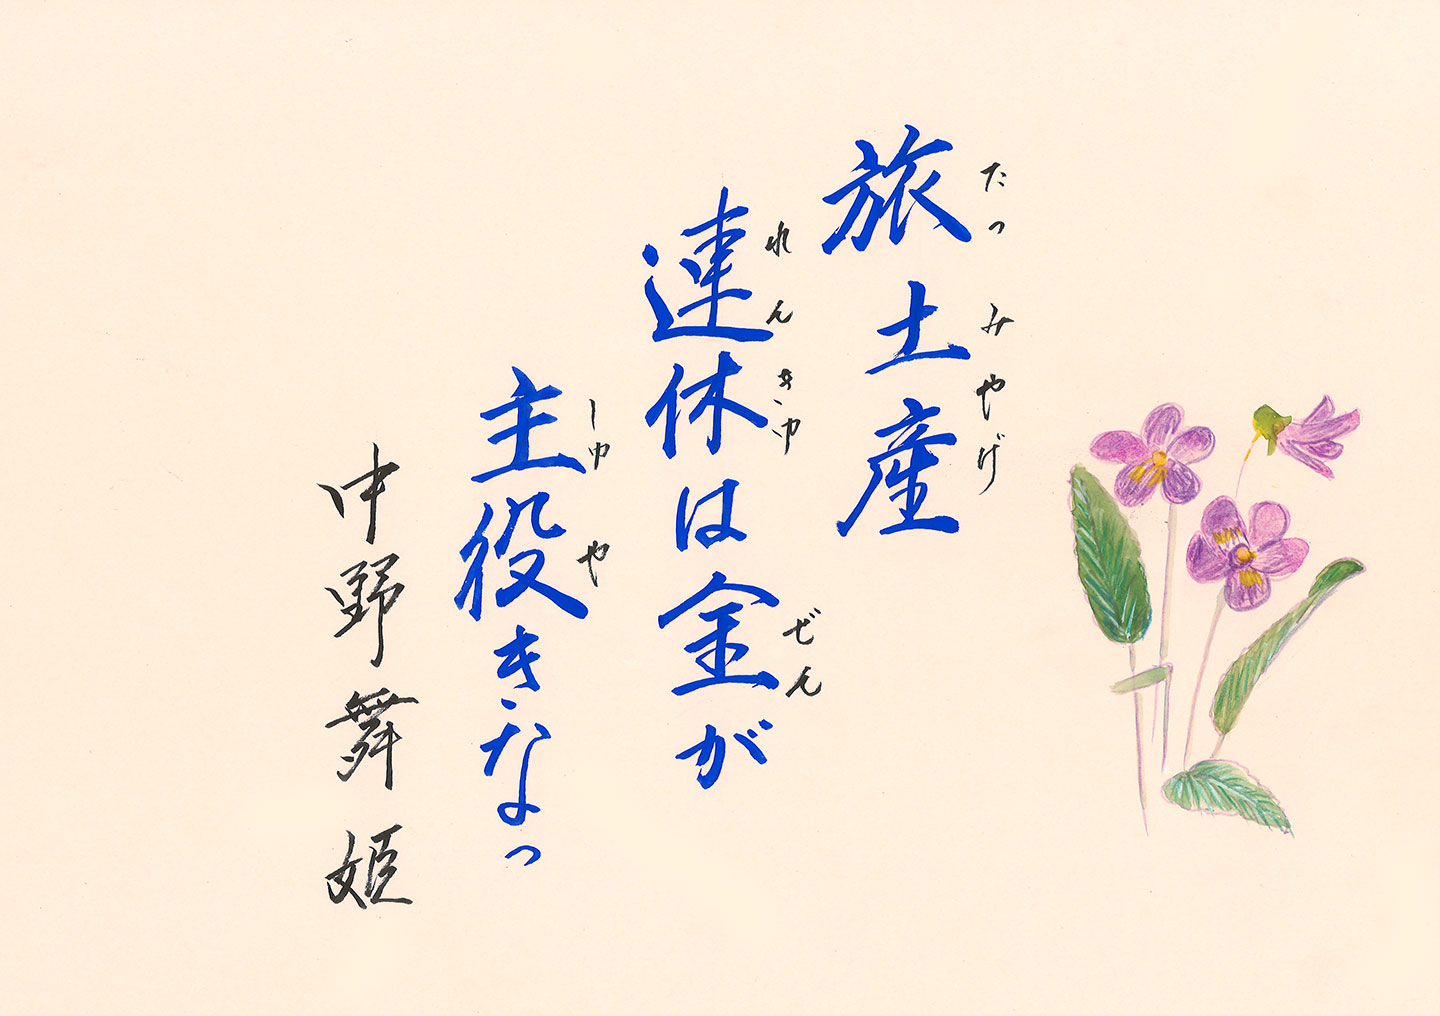 たっ みやげ
旅土産
れんきゅ ぜん
連休は金が
しゅや
主役きなっ
中野舞姫